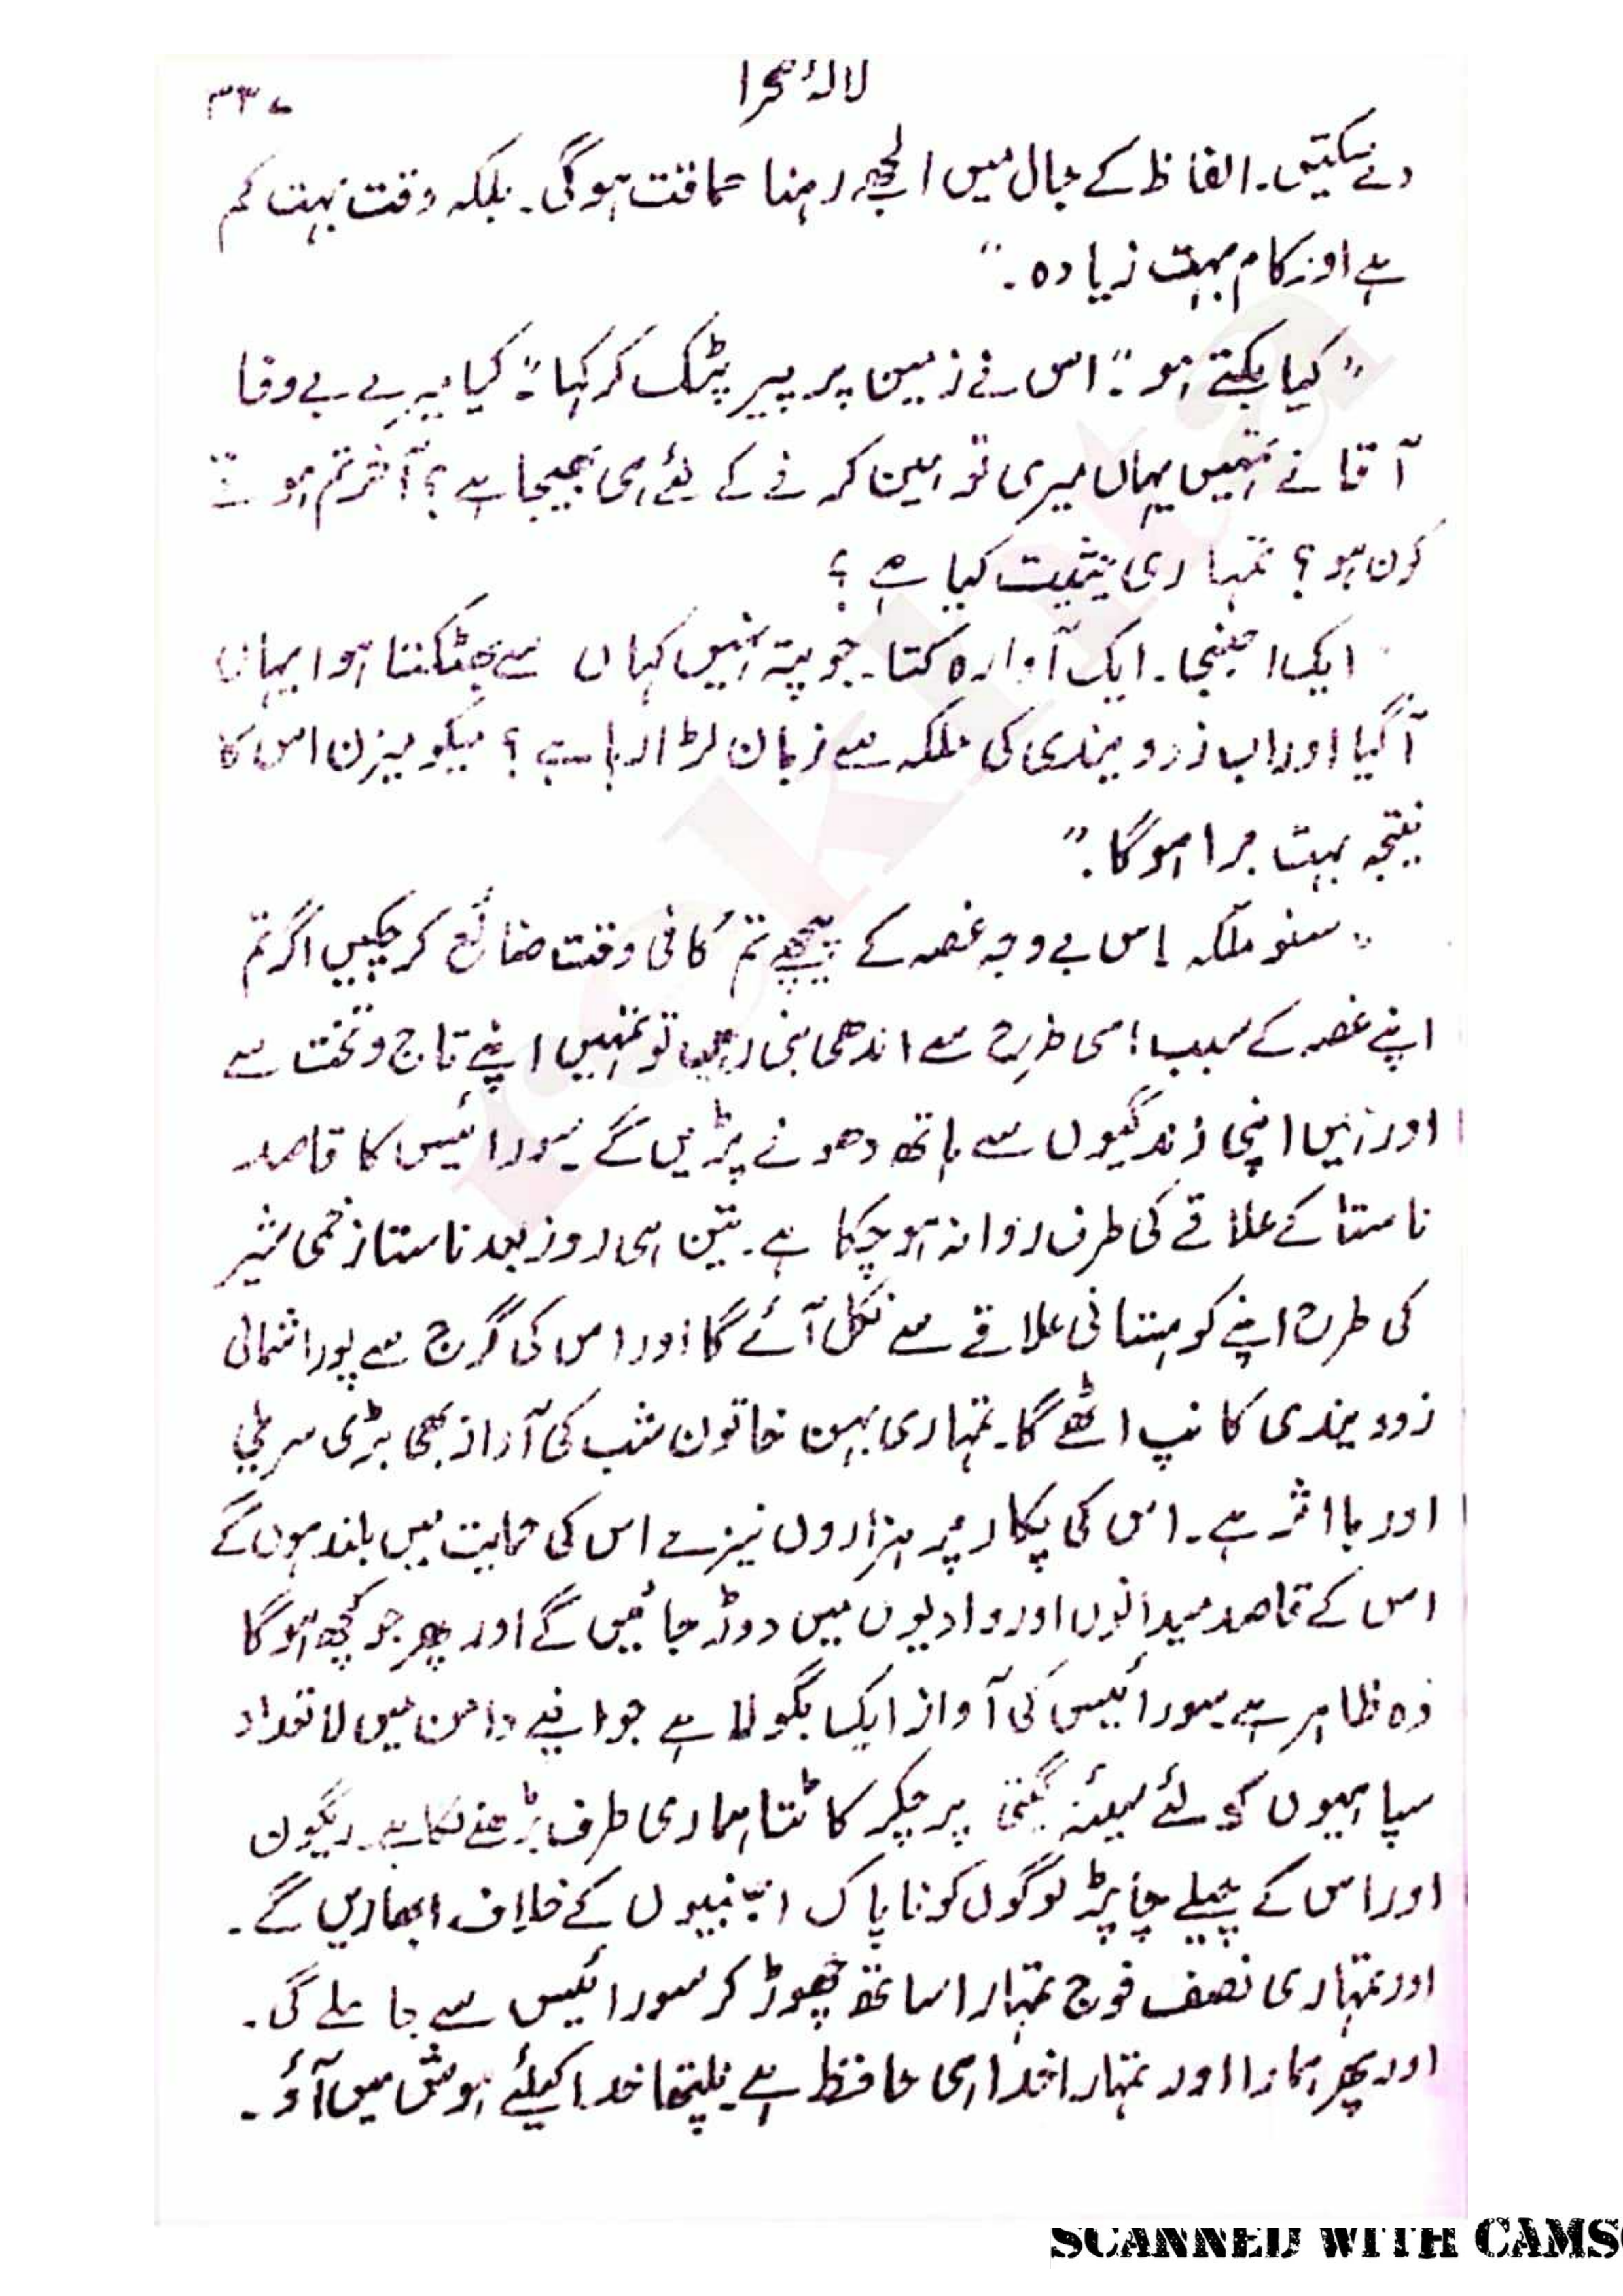 لالۂ صحرا
۳۳۷
دے سکتیں۔ الفاظ کے جال میں الجھ رہنا حماقت ہوگی۔ بلکہ وقت بہت کم
ہے اور کام بہت زیادہ۔"
"کیا بکتے ہو"۔ اس نے زمین پر پیر پٹک کر کہا"۔ کیا میرے بے وفا
آقا نے تمہیں یہاں میری توہین کرنے کے لئے ہی بھیجا ہے؟ آخر تم ہوتے
کون ہو؟ تمہاری حیثیت کیا ہے؟
ایک اجنبی۔ ایک آوارہ کتا۔ جو پتہ نہیں کہاں سے بھٹکتا ہوا یہاں
آگیا اور اب زرو بندی کی ملکہ سے زبان لڑا رہا ہے؟ میکومیزن اس کا
نتیجہ بہت برا ہوگا۔"
"سنو ملکہ اس بے وجہ غصہ کے پیچھے تم کافی وقت ضائع کر چکیں اگر تم
اپنے غصہ کے سبب اسی طرح سے اندھی بنی رہیں تو تمہیں اپنے تاج و تخت سے
اور ہمیں اپنی زندگیوں سے ہاتھ دھونے پڑیں گے سورائیس کا قاصد
ناستا کے علاقے کی طرف روانہ ہو چکا ہے۔ تین ہی روز بعد ناستا زخمی شیر
کی طرح اپنے کوہستانی علاقے سے نکل آئے گا اور اس کی گرج سے پورا شمالی
زوویندی کانپ اٹھے گا۔ تمہاری بہن خاتون شب کی آواز بھی بڑی سریلی
اور با اثر ہے۔ اس کی پکار پر ہزاروں نیزے اس کی حمایت میں بلند ہوں گے
اس کے قاصد میدانوں اور وادیوں میں دوڑ جائیں گے اور پھر جو کچھ ہوگا
وہ ظاہر ہے سورائیس کی آواز ایک بگولا ہے جو اپنے دامن میں لاتعداد
سپاہیوں کو لئے سینۂ گیتی پر چکر کاٹتا ہماری طرف بڑھنے لگا ہے۔ ریگون
اور اس کے چیلے چاپڑ لوگوں کو ناپاک اجنبیوں کے خلاف ابھاریں گے۔
اور تمہاری نصف فوج تمہارا ساتھ چھوڑ کر سورائیس سے جا ملے گی۔
اور پھر ہمارا اور تمہارا خدا ہی حافظ ہے۔ نلپتھا خدا کیلئے ہوش میں آؤ۔
SCANNED WITH CAMS